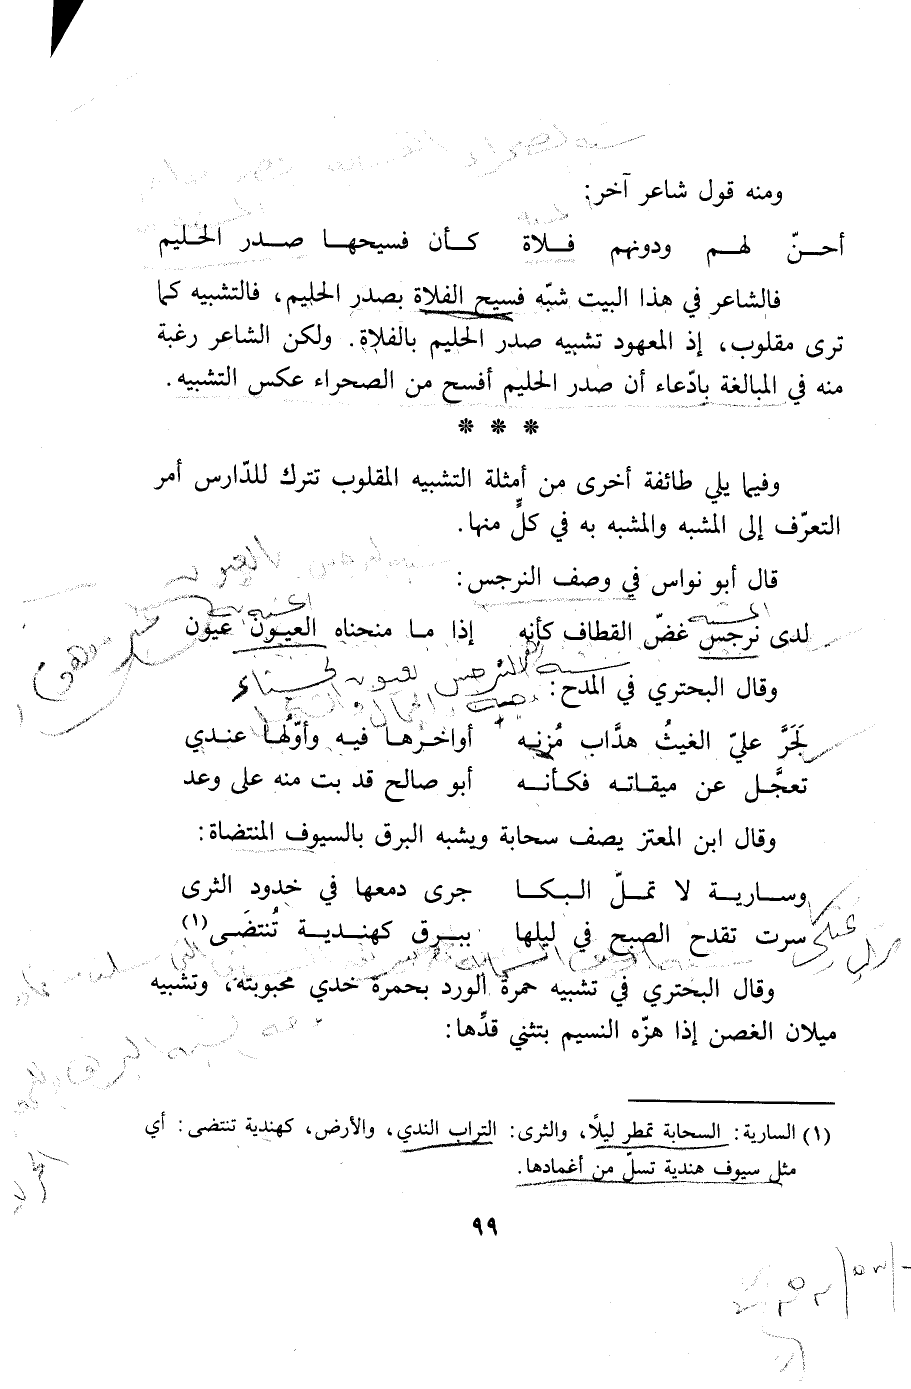 ومنه قول شاعر آخر:
أحنّ لهم ودونهم فلاة كأن فسيحها صدر الحليم
فالشاعر في هذا البيت شبّه فسيح الفلاة بصدر الحليم، فالتشبيه كما
ترى مقلوب، إذ المعهود تشبيه صدر الحليم بالفلاة. ولكن الشاعر رغبة
منه في المبالغة بادّعاء أن صدر الحليم أفسح من الصحراء عكس التشبيه.
* * *
وفيما يلي طائفة أخرى من أمثلة التشبيه المقلوب تترك للدّارس أمر
التعرّف إلى المشبه والمشبه به في كلٍّ منها.
قال أبو نواس في وصف النرجس:
لدى نرجس غضّ القطاف كأنه إذا ما منحناه العيون عيون
وقال البحتري في المدح:
لَجَرَّ عليّ الغيثُ هدَّاب مُزنِه أواخرها فيه وأوّلُها عندي
تعجَّل عن ميقاته فكأنه أبو صالح قد بت منه على وعد
وقال ابن المعتز يصف سحابة ويشبه البرق بالسيوف المنتضاة:
وسارية لا تملّ البكا جرى دمعها في خدود الثرى
سرت تقدح الصبح في ليلها ببرق كهندية تُنتضَى(١)
وقال البحتري في تشبيه حمرة الورد بحمرة خدي محبوبته، وتشبيه
ميلان الغصن إذا هزّه النسيم بتثني قدِّها:
(١) السارية: السحابة تمطر ليلًا، والثرى: التراب الندي، والأرض، كهندية تنتضى: أي
مثل سيوف هندية تسلّ من أغمادها.
٩٩